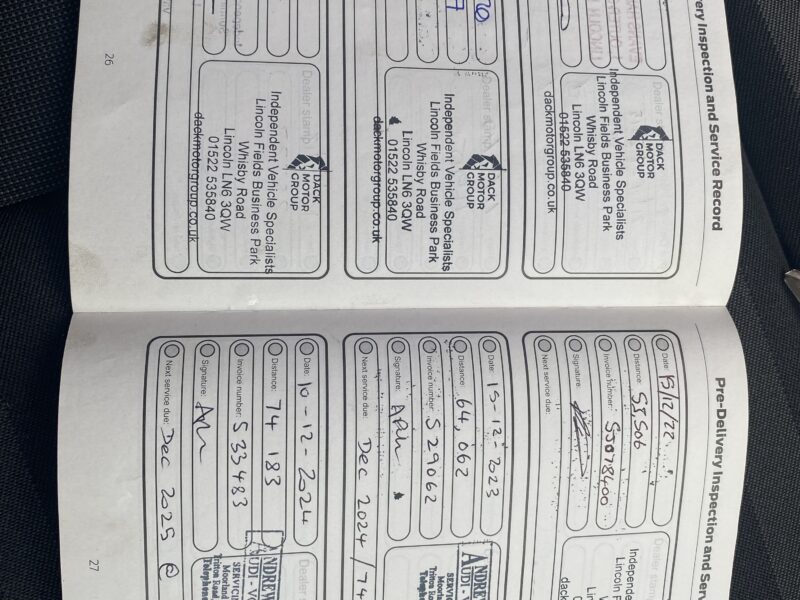 Inspection and Service Record
Dealer stamp
DACK
MOTOR
GROUP
Independent Vehicle Specialists
Lincoln Fields Business Park
Whisby Road
Lincoln LN6 3QW
01522 535840
dackmotorgroup.co.uk
Dealer stamp
DACK
MOTOR
GROUP
Independent Vehicle Specialists
Lincoln Fields Business Park
Whisby Road
Lincoln LN6 3QW
01522 535840
dackmotorgroup.co.uk
Dealer stamp
DACK
MOTOR
GROUP
Independent Vehicle Specialists
Lincoln Fields Business Park
Whisby Road
Lincoln LN6 3QW
01522 535840
dackmotorgroup.co.uk
26
Pre-Delivery Inspection and
Date: 13/12/22
Distance: 51506
Invoice number: SJ078400
Signature:
Next service due:
Date: 15-12-2023
Distance: 64,062
Invoice number: S 29062
Signature:
Next service due: Dec 2024 / 74
Date: 10-12-2024
Distance: 74 183
Invoice number: S 33483
Signature:
Next service due: Dec 2025 @
Dealer
ANDREW
AUDI - VO
SERVIC
Moorland
Triton Road
Telephone
27